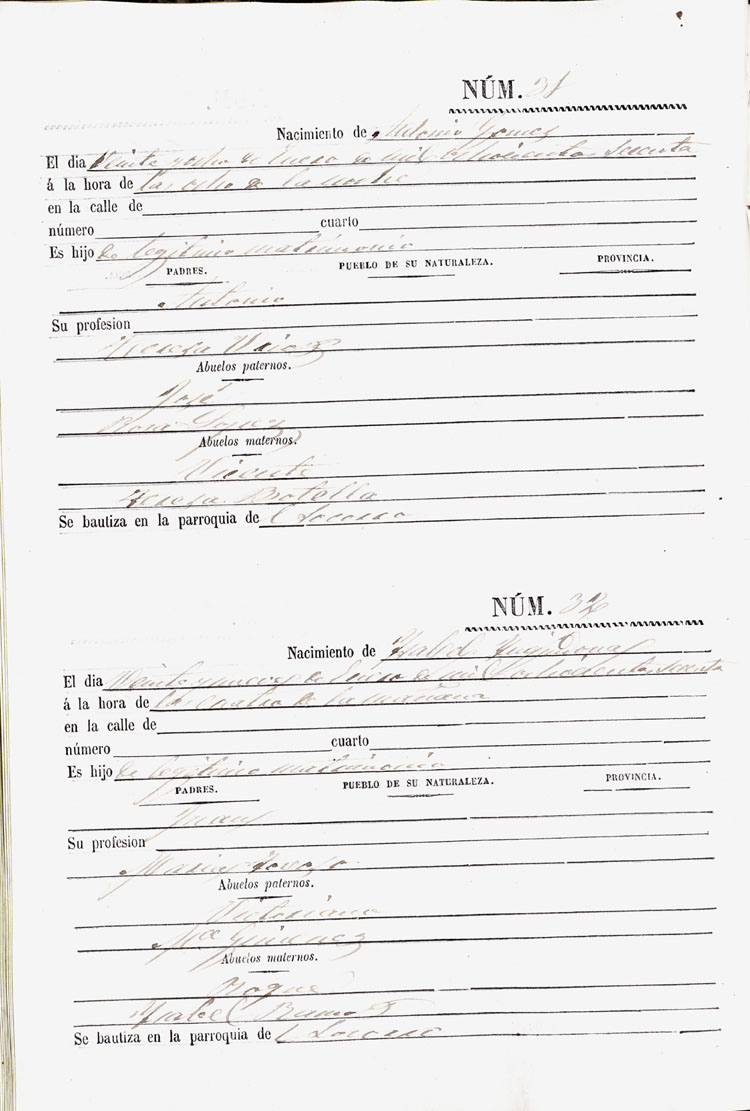 NÚM. 31
Nacimiento de Antonio Gomez
El dia Veinte y ocho de Enero de mil ochocientos sesenta
á la hora de las ocho de la noche
en la calle de
número cuarto
Es hijo de legitimo matrimonio
PADRES. PUEBLO DE SU NATURALEZA. PROVINCIA.
Antonio
Su profesion
Teresa
Abuelos paternos.
José
Rosa
Abuelos maternos.
Vicente
Teresa Botella
Se bautiza en la parroquia de l Socorro
NÚM. 32
Nacimiento de
El dia Veinte y nueve de Enero de mil ochocientos sesenta
á la hora de las cuatro de la mañana
en la calle de
número cuarto
Es hijo de legitimo matrimonio
PADRES. PUEBLO DE SU NATURALEZA. PROVINCIA.
Juan
Su profesion
Maria
Abuelos paternos.
Victoriano
Mª Gimenez
Abuelos maternos.
Roque
Ysabel
Se bautiza en la parroquia de l Socorro